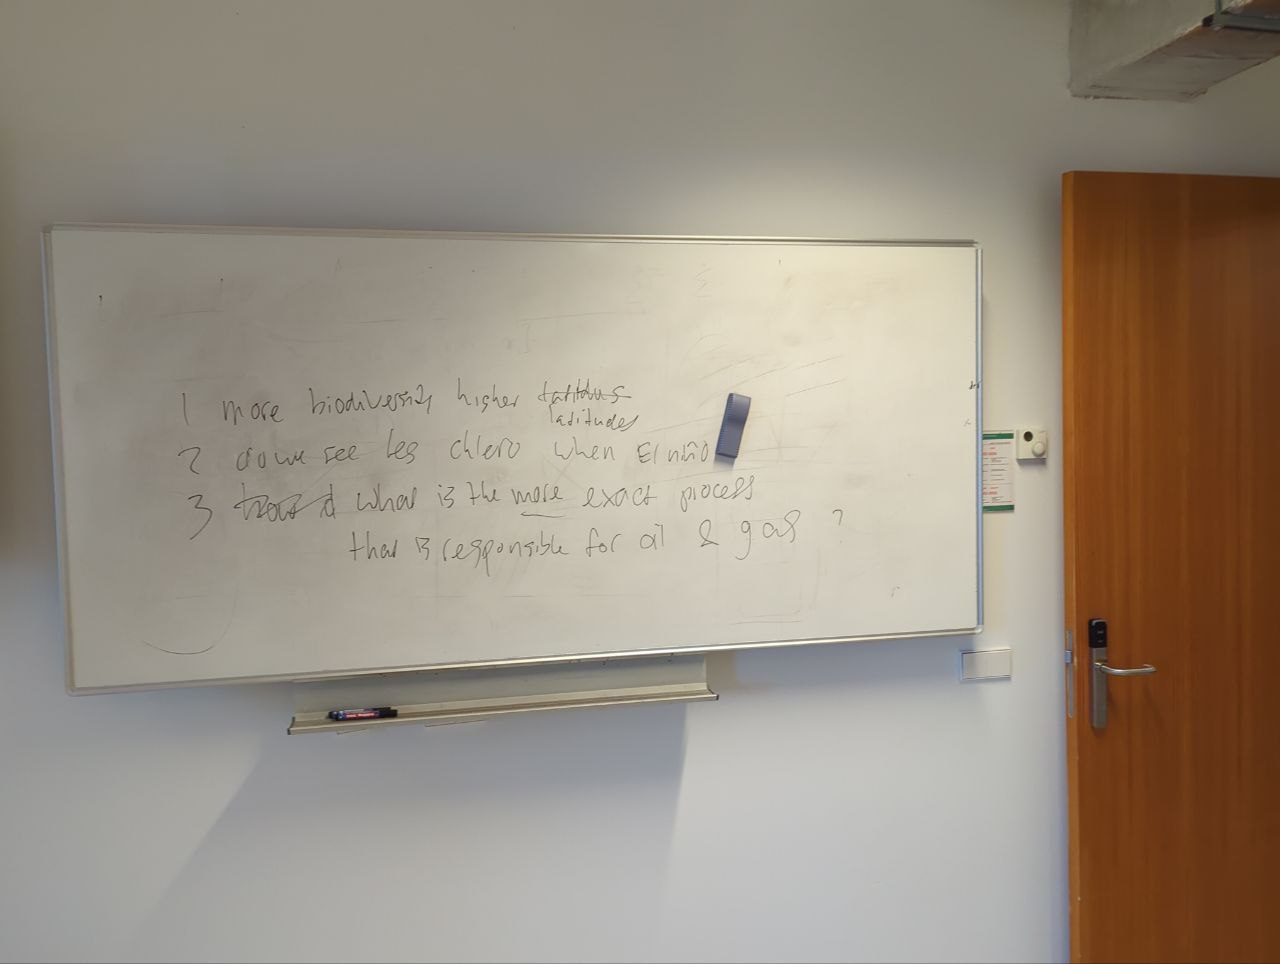 1 more biodiversity higher
latitudes
2 do we see les chloro when El niño
3 what is the more exact process
that is responsible for oil & gas ?